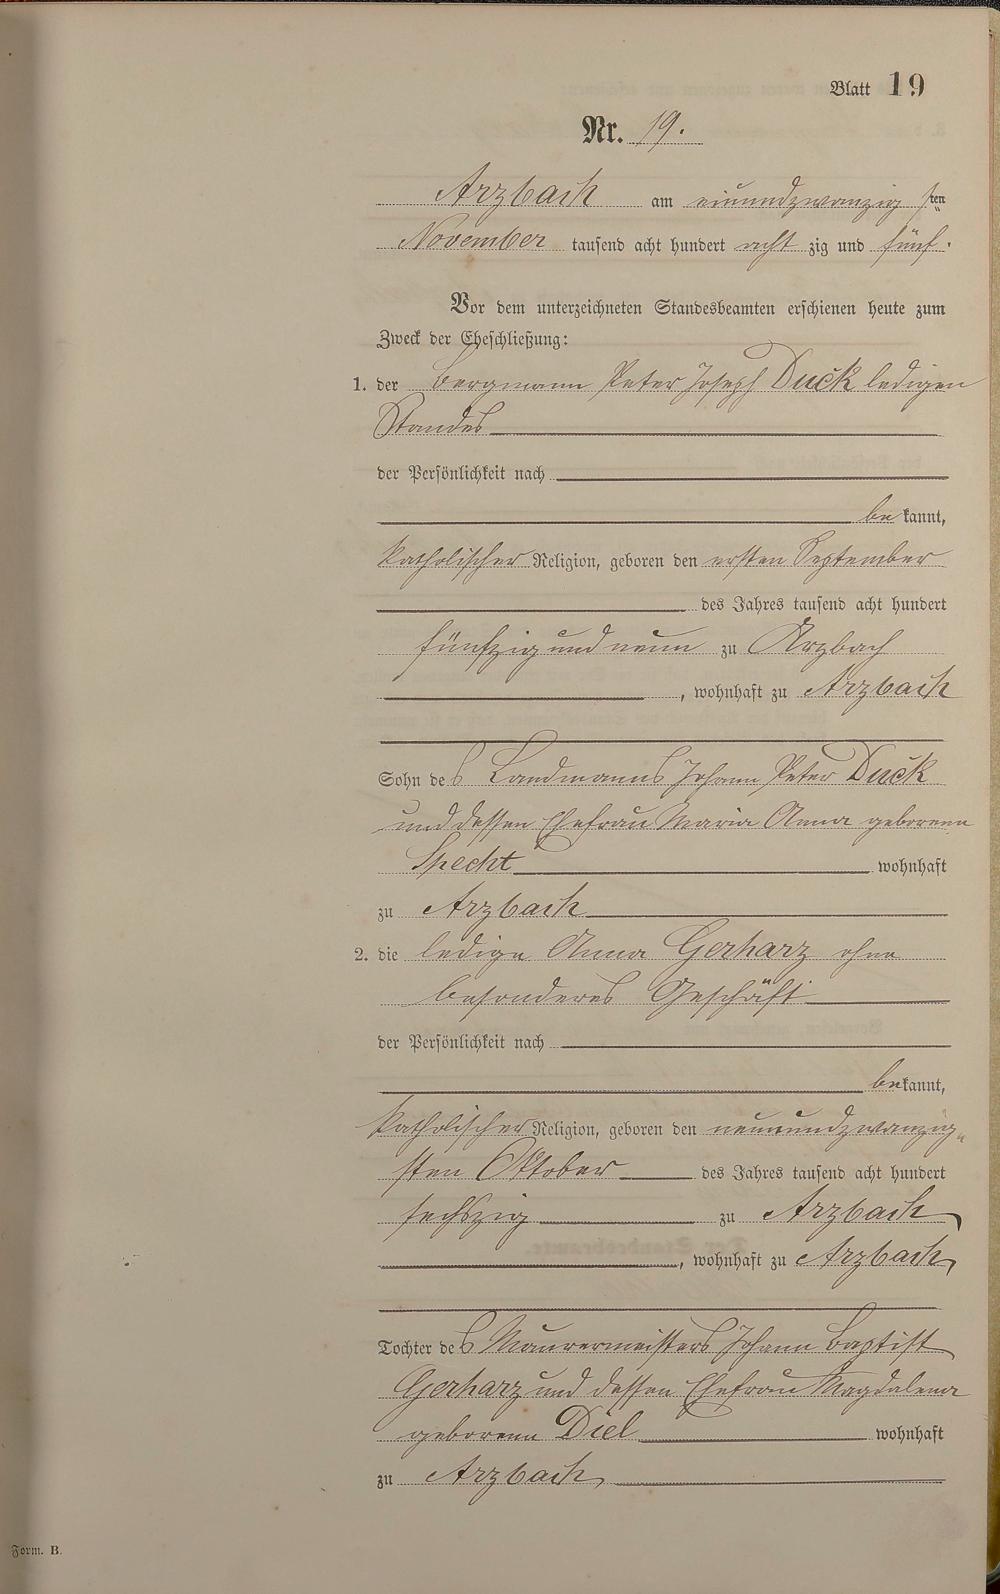 Blatt 19
Nr. 19.
Arzbach am einundzwanzig sten
November tausend acht hundert acht zig und fünf.
Vor dem unterzeichneten Standesbeamten erschienen heute zum
Zweck der Eheschließung:
1. der Bergmann Peter Joseph Duck ledigen
Standes
der Persönlichkeit nach
be kannt,
katholischer Religion, geboren den ersten September
des Jahres tausend acht hundert
fünfzig und neun zu Arzbach
, wohnhaft zu Arzbach
Sohn des Landmanns Johann Peter Duck
und dessen Ehefrau Maria Anna geborene
Specht wohnhaft
zu Arzbach
2. die ledige Anna Gerharz ohne
besonderes Geschäft
der Persönlichkeit nach
bekannt,
katholischer Religion, geboren den neunundzwanzig-
sten Oktober des Jahres tausend acht hundert
sechszig zu Arzbach,
, wohnhaft zu Arzbach,
Tochter des Maurermeisters Johann Baptist
Gerharz und dessen Ehefrau Magdalena
geborene Diel wohnhaft
zu Arzbach,
Form. B.